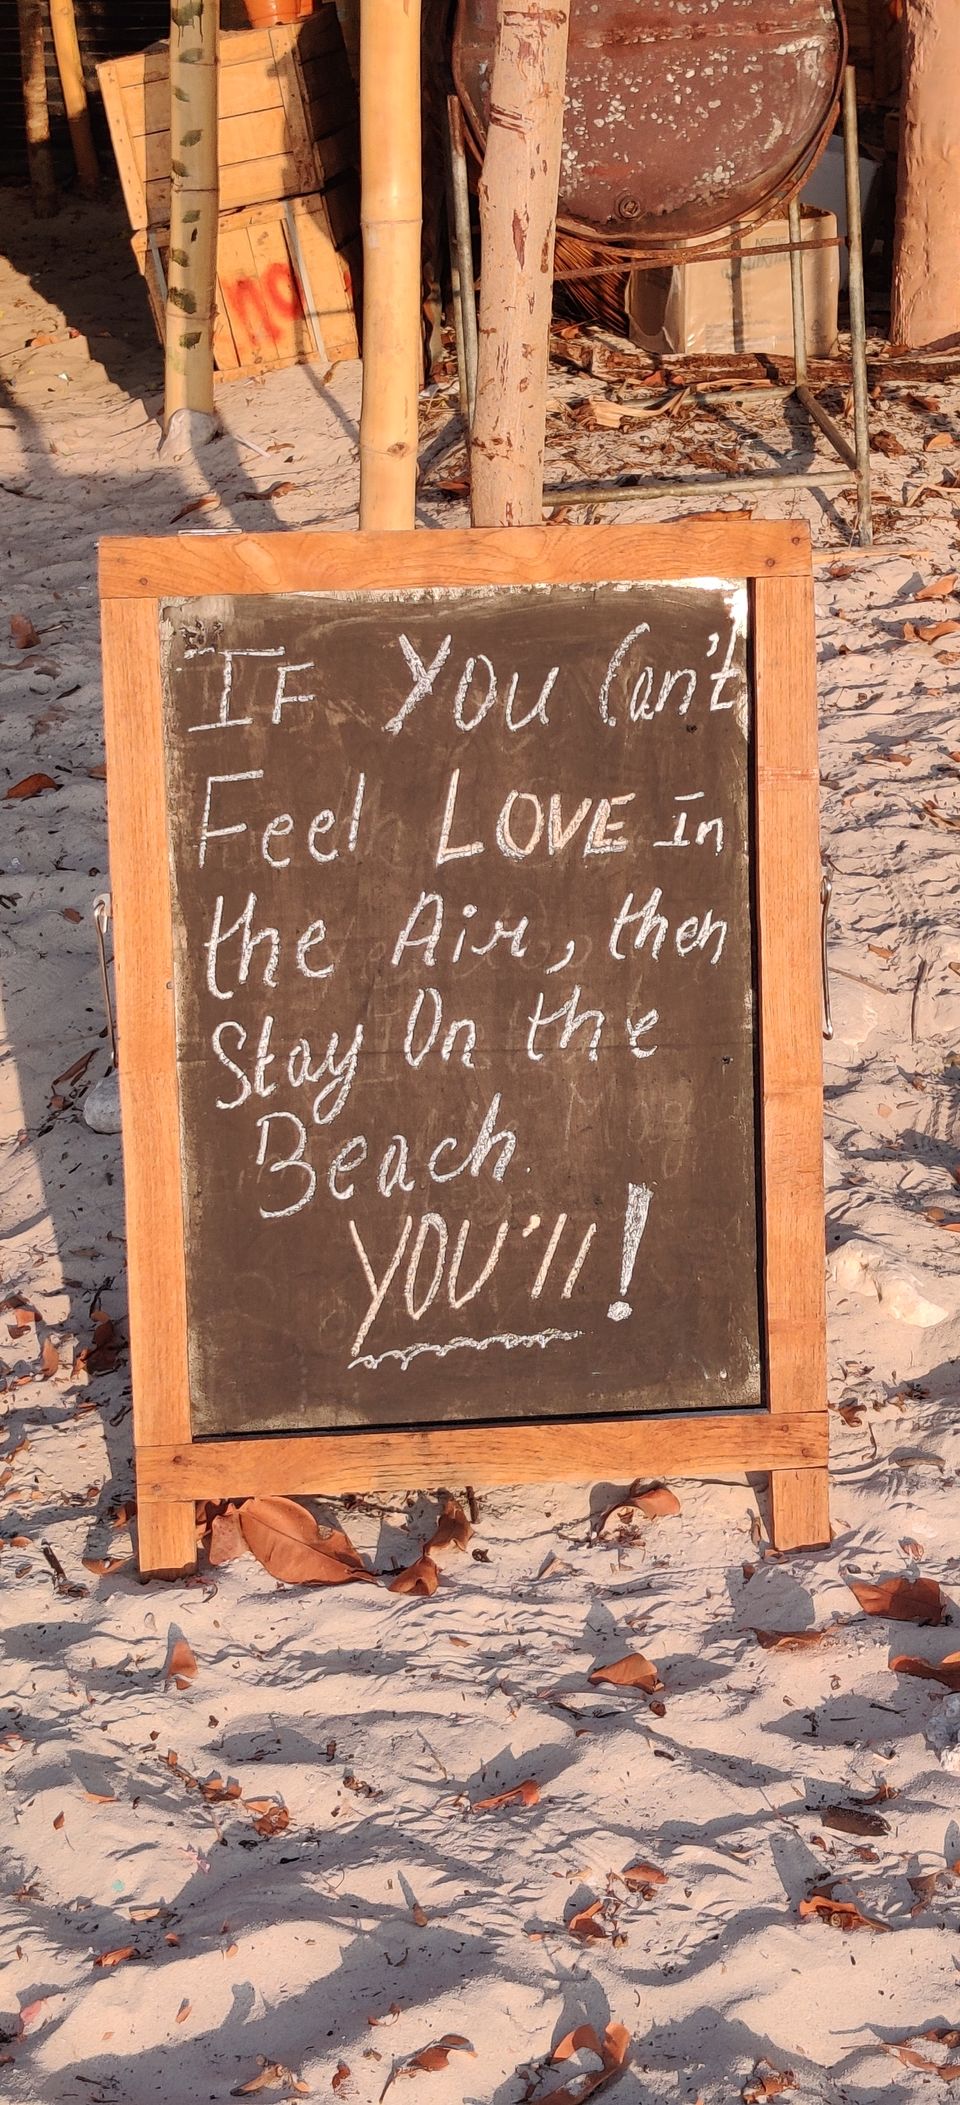 no
IF YOU Can't
Feel LOVE In
the Air, then
Stay On the
Beach.
YOU'll!